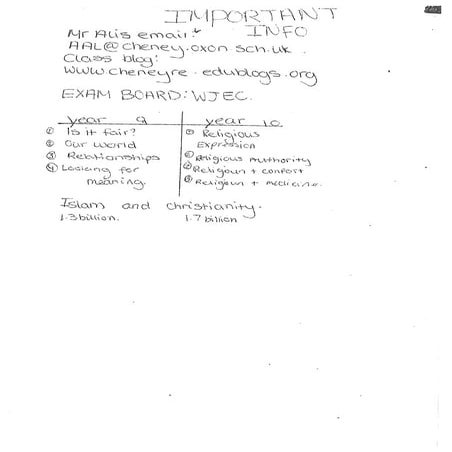 IMPORTANT
INFO
Mr Alis email:
AAL@cheney.oxon.sch.uk
Class blog:
www.cheneyre.edublogs.org
EXAM BOARD: WJEC.
year 9 year 10
① Is it fair? ① Religious
Expression
② Our world
③ Relationships ② Religious Authority
④ Looking for ③ Religion + conflict
meaning. ④ Religion + medicine.
Islam and Christianity.
1.3 billion. 1.7 billion